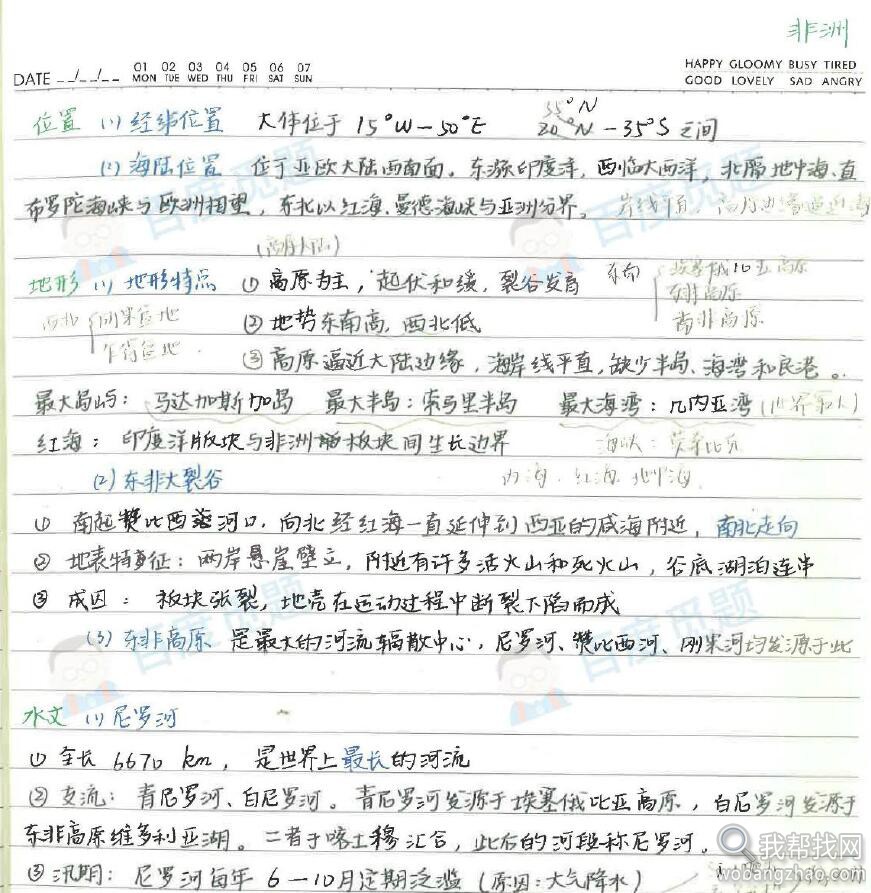 非洲
01 02 03 04 05 06 07 HAPPY GLOOMY BUSY TIRED
DATE _ _/_ _/_ _ MON TUE WED THU FRI SAT SUN GOOD LOVELY SAD ANGRY
35°N
位置 (1) 经纬位置 大体位于 15°W—50°E 20°N—35°S 之间
(2) 海陆位置 位于亚欧大陆西南面。东濒印度洋，西临大西洋，北隔地中海、直
布罗陀海峡与欧洲相望，东北以红海、曼德海峡与亚洲分界。 岸线平直，
(高原大陆)
地形 (1) 地形特点 ① 高原为主，起伏和缓，裂谷发育 东南 埃塞俄比亚高原
东非高原
西北 刚果盆地 ② 地势东南高，西北低 南非高原
乍得盆地 ③ 高原逼近大陆边缘，海岸线平直，缺少半岛、海湾和良港。
最大岛屿：马达加斯加岛 最大半岛：索马里半岛 最大海湾：几内亚湾 (世界最大)
红海：印度洋版块与非洲板块间生长边界 海峡：莫桑比克
(2) 东非大裂谷 内海：红海、地中海
① 南起赞比西河口，向北经红海一直延伸到西亚的咸海附近，南北走向
② 地表特征：两岸悬崖壁立，附近有许多活火山和死火山，谷底湖泊连串
③ 成因：板块张裂，地壳在运动过程中断裂下陷而成
(3) 东非高原 是最大的河流辐散中心，尼罗河、赞比西河、刚果河均发源于此
水文 (1) 尼罗河
① 全长 6670 km，是世界上最长的河流
② 支流：青尼罗河、白尼罗河。青尼罗河发源于埃塞俄比亚高原，白尼罗河发源于
东非高原维多利亚湖。二者于喀土穆汇合，此后的河段称尼罗河。
③ 汛期：尼罗河每年 6—10月定期泛滥 (原因：大气降水)
百度觅题
我帮找网
wobangzhao.com